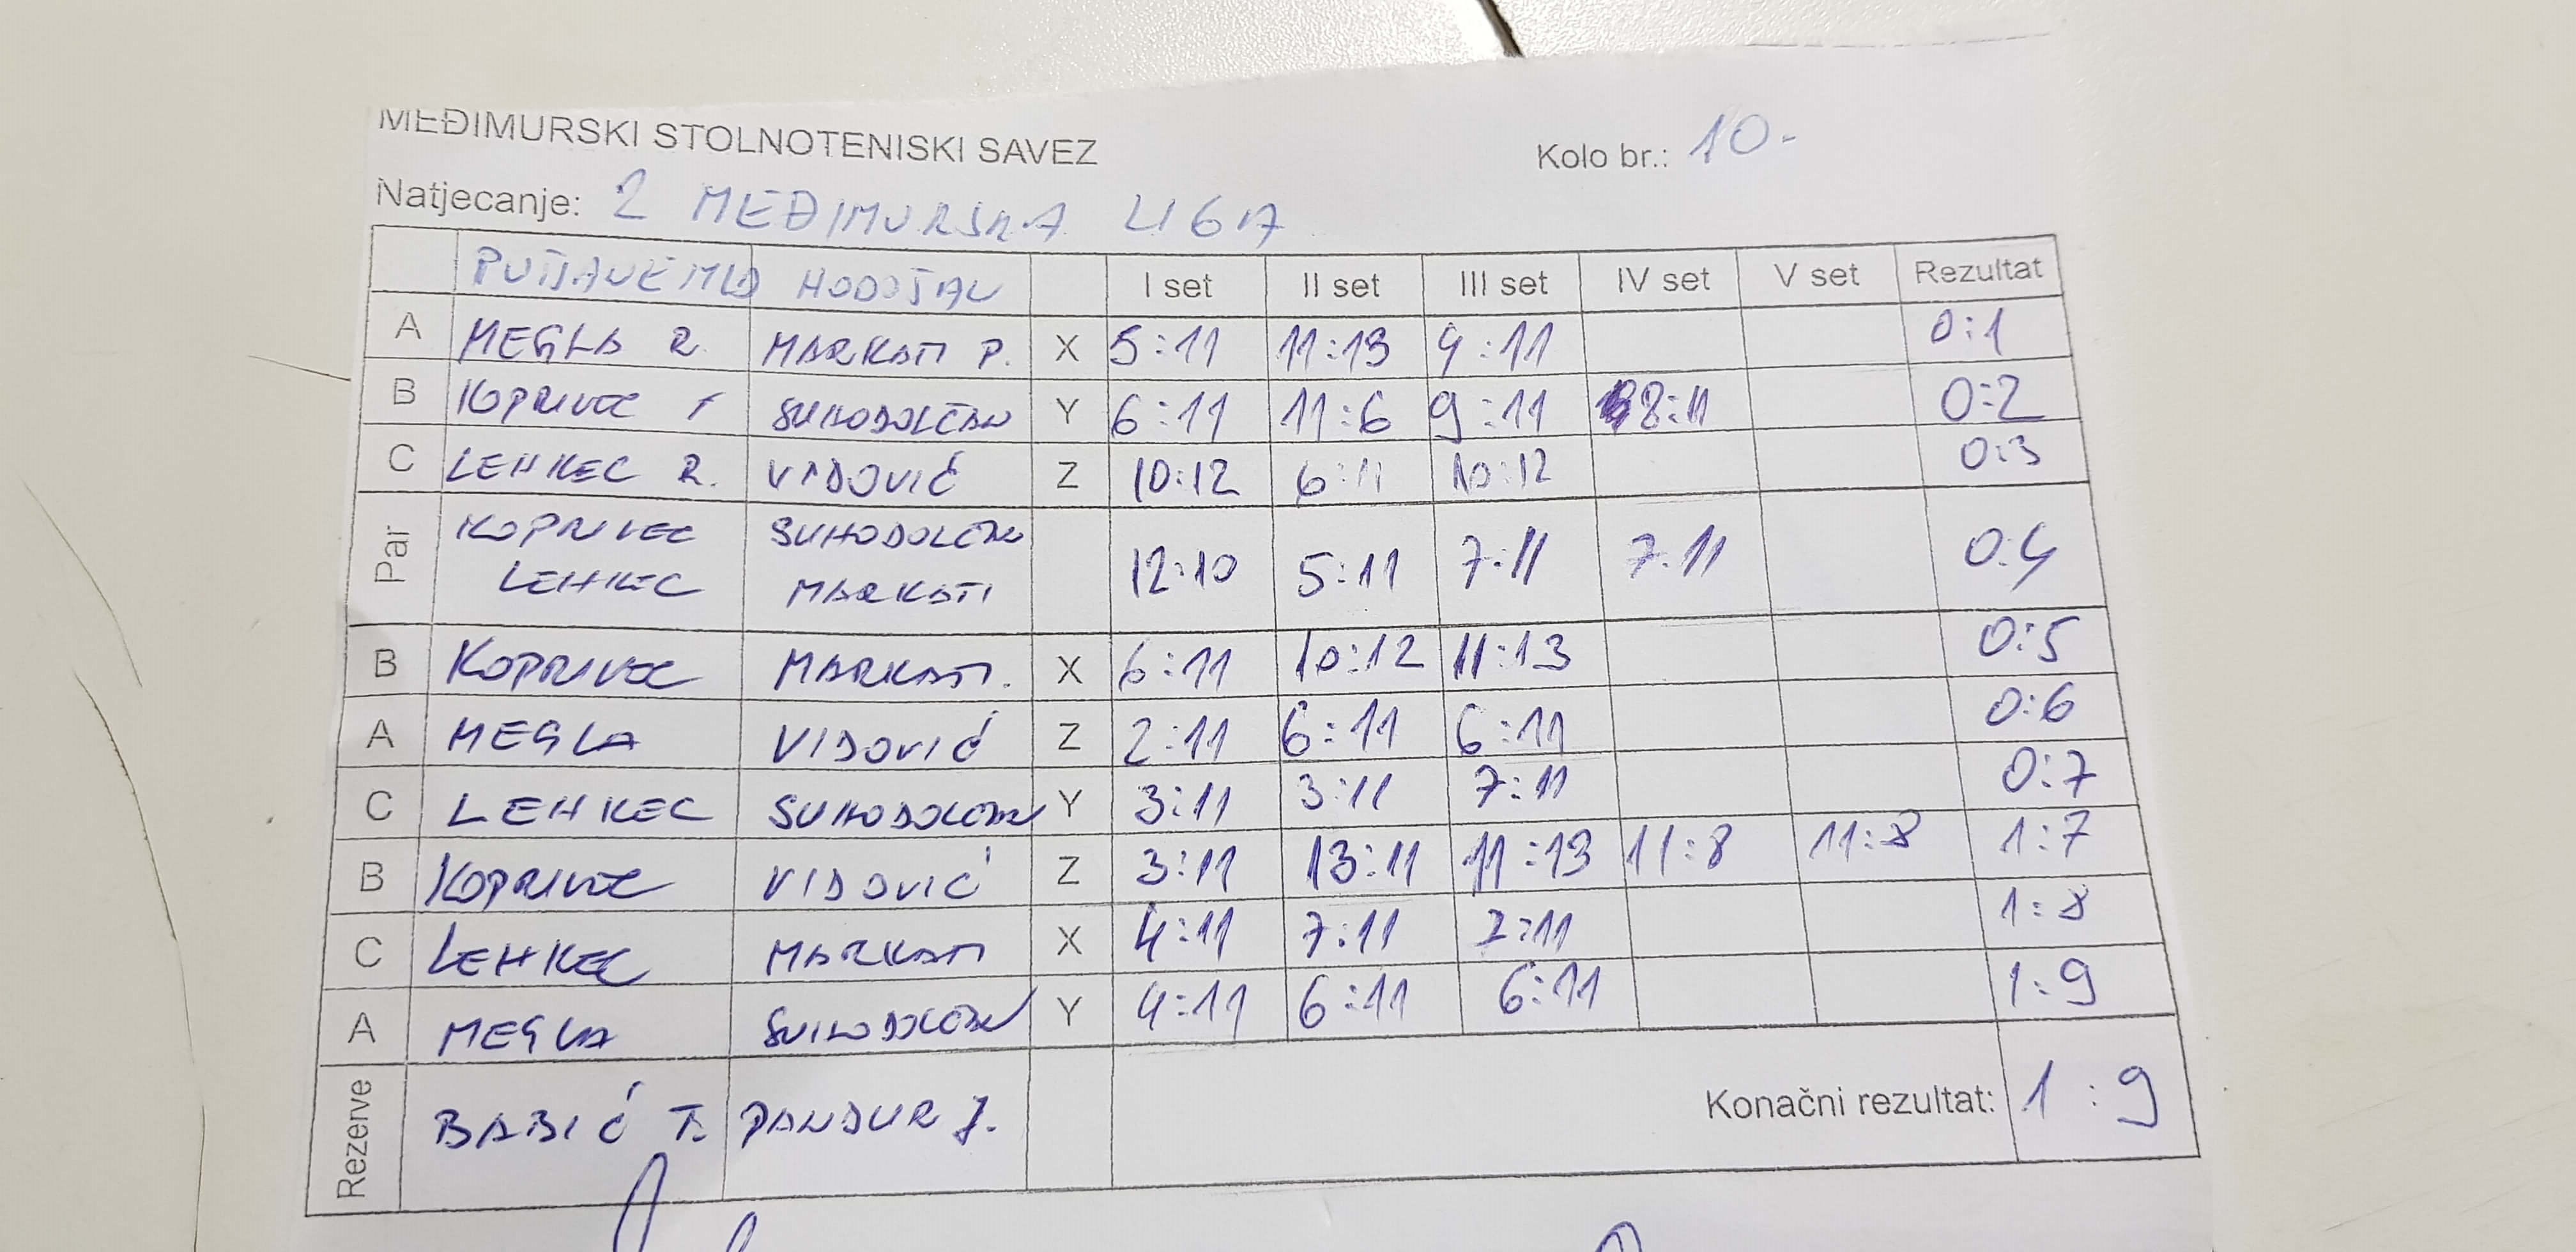 MEĐIMURSKI STOLNOTENISKI SAVEZ
Kolo br.: 10.
Natjecanje: 2 MEĐIMURSKA LIGA
HODOŠAN I set II set III set IV set V set Rezultat
A MEGLA R. MARKATI P. X 5:11 11:13 9:11 0:1
B KOPRIVEC SUHODOLČAN Y 6:11 11:6 9:11 8:11 0:2
C LEHKEC R. VIDOVIĆ Z 10:12 6:11 10:12 0:3
Par KOPRIVEC LEHKEC SUHODOLČAN MARKATI 12:10 5:11 7:11 7:11 0:4
B KOPRIVEC MARKATI. X 6:11 10:12 11:13 0:5
A MEGLA VIDOVIĆ Z 2:11 6:11 6:11 0:6
C LEHKEC SUHODOLČAN Y 3:11 3:11 7:11 0:7
B KOPRIVEC VIDOVIĆ Z 3:11 13:11 11:13 11:8 11:8 1:7
C LEHKEC MARKATI X 4:11 7:11 7:11 1:8
A MEGLA SUHODOLČAN Y 4:11 6:11 6:11 1:9
Rezerve BABIĆ T. PANDUR J. Konačni rezultat: 1:9